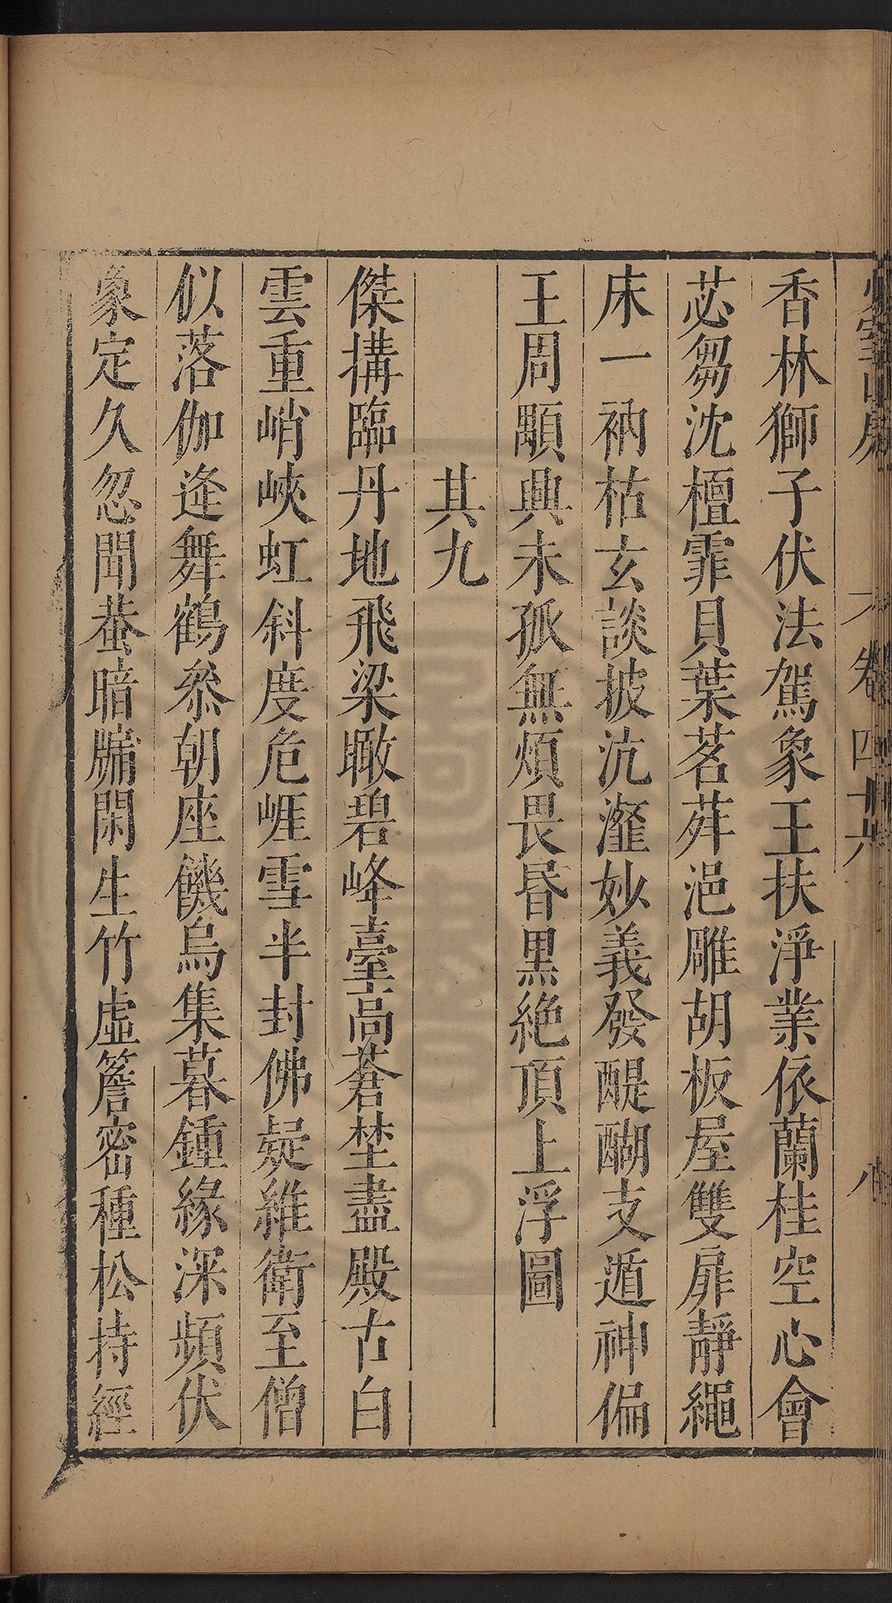 香林獅子伏法駕象王扶淨業依蘭桂空心會
苾芻沈檀霏貝葉茗荈浥雕胡板屋雙扉靜繩
床一衲枯玄談披沆瀣妙義發醍醐支遁神偏
王周顒興未孤無煩畏昏黒絶頂上浮圖
其九
傑搆臨丹地飛梁瞰碧峰臺高蒼埜盡殿古白
雲重峭峽虹斜度危崕雪半封佛疑維衛至僧
似落伽逢舞鶴叅朝座饑烏集暮鍾緣深頻伏
象定久忽聞蛬暗牗閑生竹虛簷密種松持經
少室山房
卷四十六
八